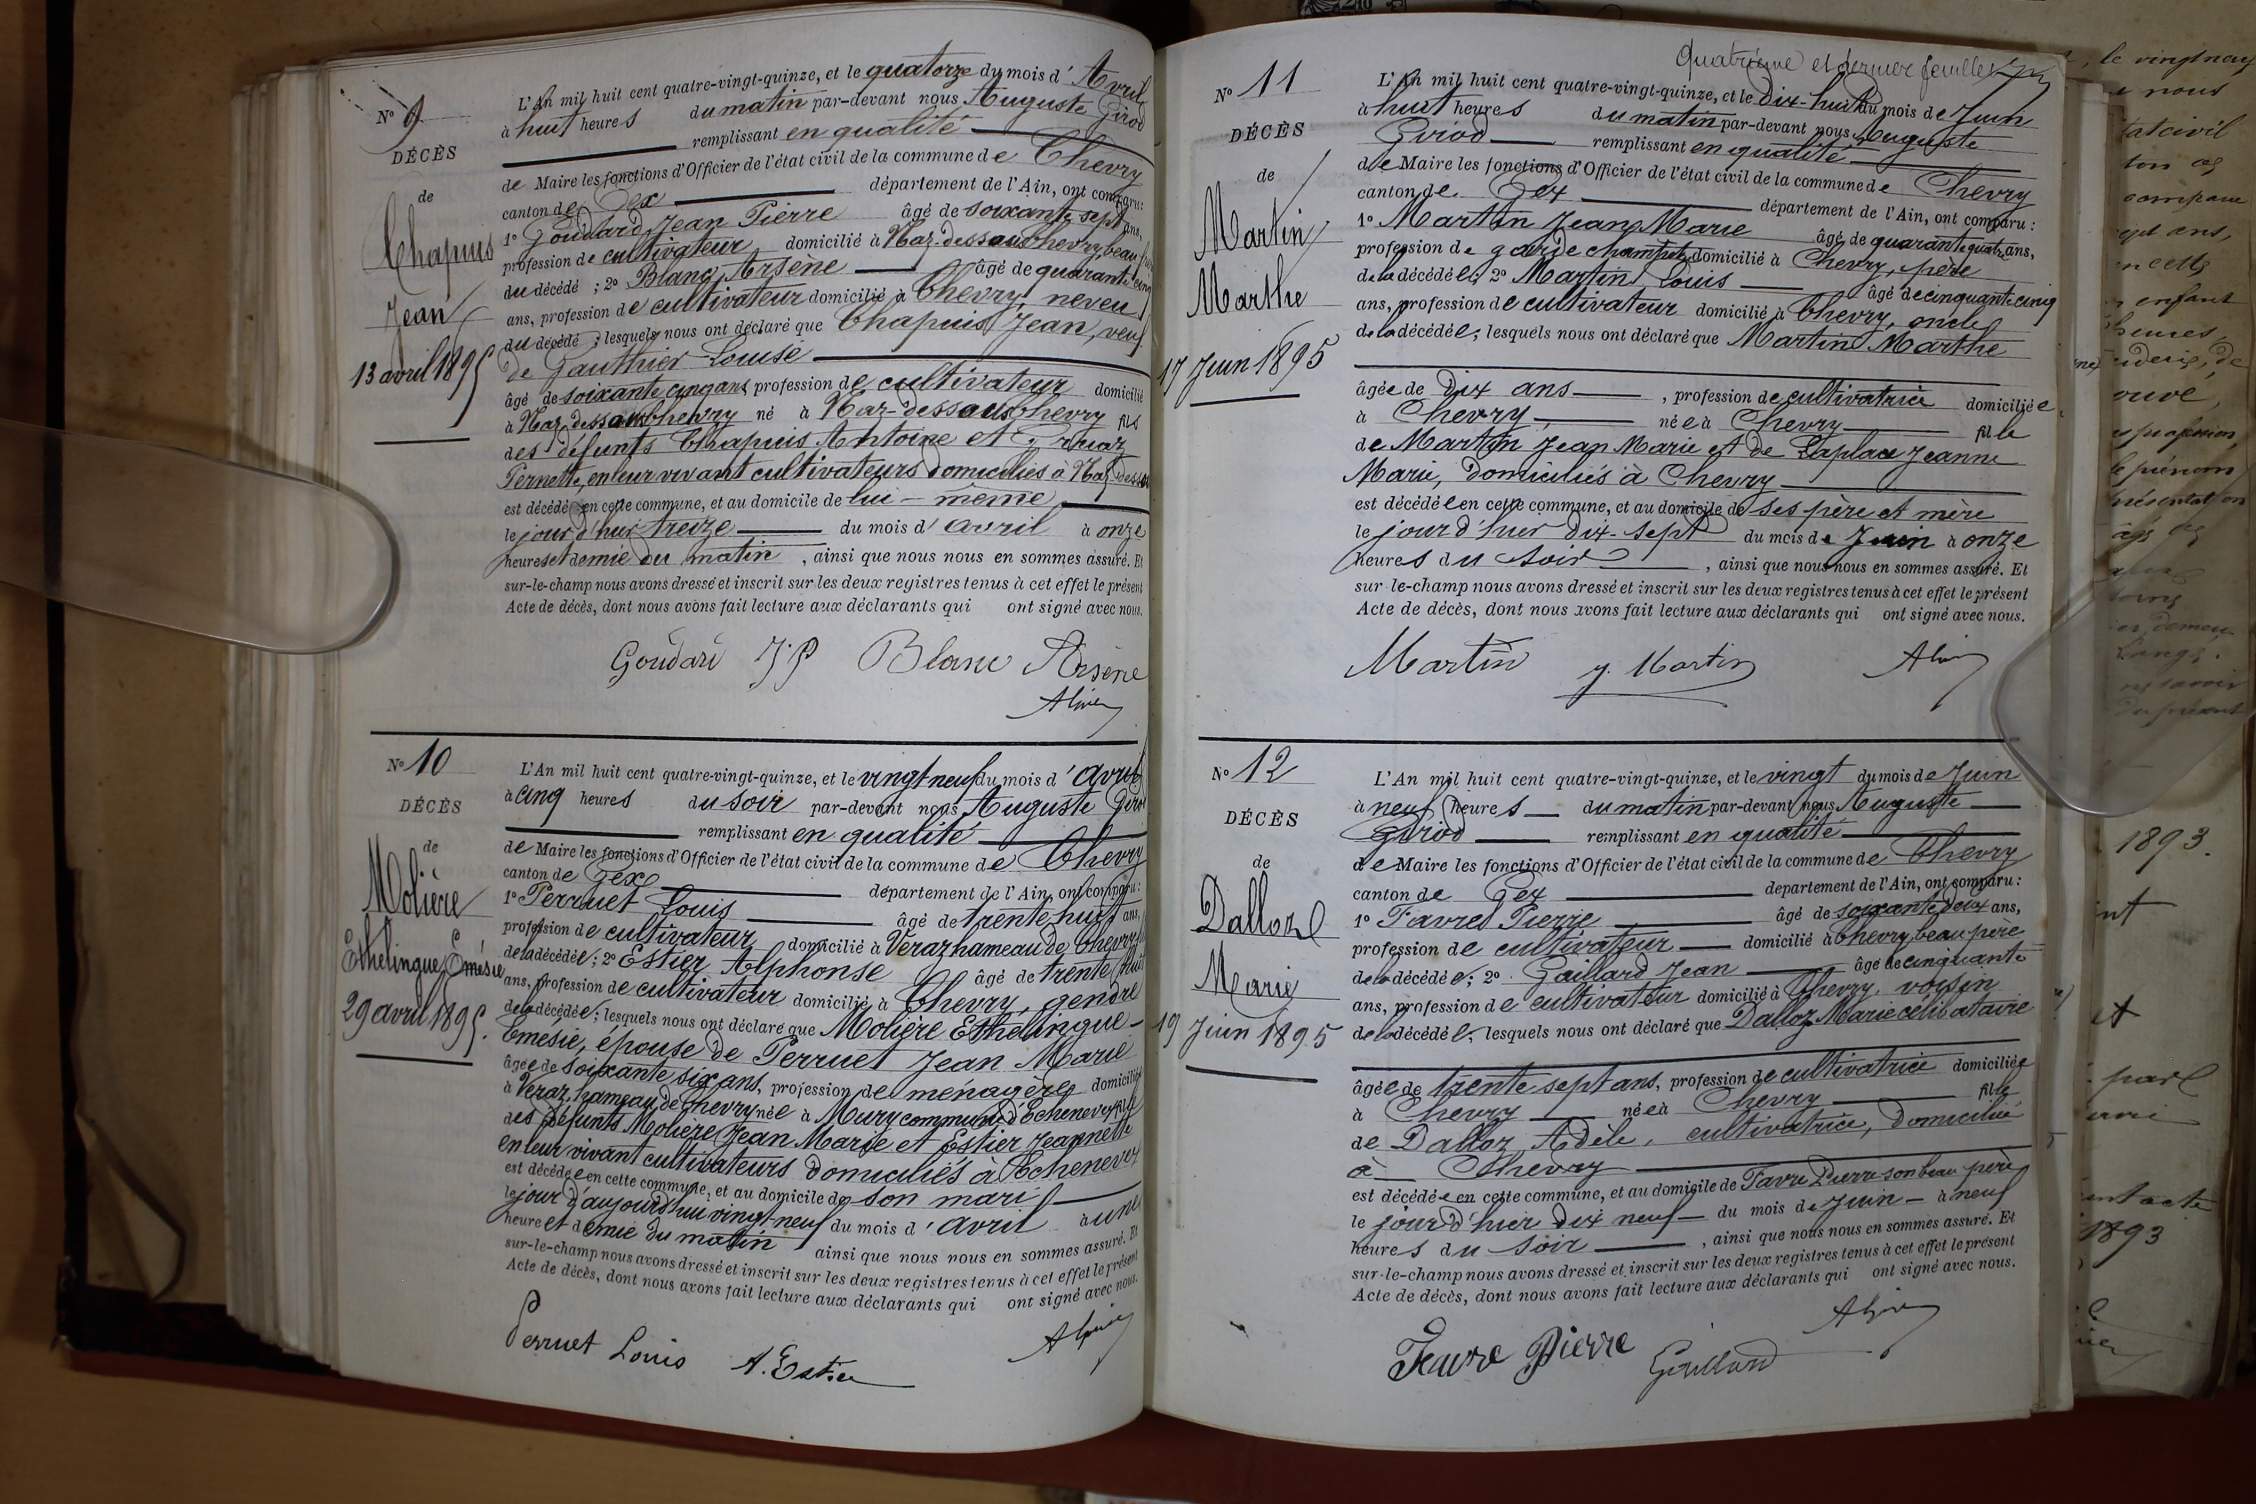 N° 9
DÉCÈS
de
Chapuis
Jean
13 avril 1895
L'An mil huit cent quatre-vingt-quinze, et le quatorze du mois d'Avril
à huit heures du matin par-devant nous Auguste Girod
remplissant en qualité
de Maire les fonctions d'Officier de l'état civil de la commune de Chevry
canton de Gex département de l'Ain, ont comparu:
1° Goudard Jean Pierre âgé de soixante sept ans,
profession de cultivateur domicilié à Naz-dessous Chevry, beau
du décédé ; 2° Blanc Arsène âgé de quarante cinq
ans, profession de cultivateur domicilié à Chevry, neveu
du décédé ; lesquels nous ont déclaré que Chapuis Jean, veuf
de Gauthier Louise
âgé de soixante cinq ans, profession de cultivateur domicilié
à Naz-dessous Chevry né à Naz-dessous Chevry fils
des défunts Chapuis Antoine et Gruaz
Pernette, en leur vivant cultivateurs domiciliés à Naz-dessous
est décédé en cette commune, et au domicile de lui-même
le jour d'hier treize du mois d'avril à onze
heures et demie du matin , ainsi que nous nous en sommes assuré. Et
sur-le-champ nous avons dressé et inscrit sur les deux registres tenus à cet effet le présent
Acte de décès, dont nous avons fait lecture aux déclarants qui ont signé avec nous.
Goudard J. P Blanc Arsène
N° 10
DÉCÈS
de
Molière
Ethelingue Emésie
29 avril 1895.
L'An mil huit cent quatre-vingt-quinze, et le vingt neuf du mois d'avril
à cinq heures du soir par-devant nous Auguste Girod
remplissant en qualité
de Maire les fonctions d'Officier de l'état civil de la commune de Chevry
canton de Gex département de l'Ain, ont comparu:
1° Perruet Louis âgé de trente huit ans,
profession de cultivateur domicilié à Veraz hameau de Chevry
de la décédée ; 2° Estier Alphonse âgé de trente huit
ans, profession de cultivateur domicilié à Chevry, gendre
de la décédée ; lesquels nous ont déclaré que Molière Ethelingue
Emésie, épouse de Perruet Jean Marie
âgée de soixante six ans, profession de ménagère domiciliée
à Veraz, hameau de Chevry née à Mury commune d'Echenevex fille
des défunts Molière Jean Marie et Estier Jeannette
en leur vivant cultivateurs domiciliés à Echenevex
est décédée en cette commune, et au domicile de son mari
le jour d'aujourd'hui vingt-neuf du mois d'avril à une
heure et demie du matin ainsi que nous nous en sommes assuré. Et
sur-le-champ nous avons dressé et inscrit sur les deux registres tenus à cet effet le présent
Acte de décès, dont nous avons fait lecture aux déclarants qui ont signé avec nous.
Perruet Louis A. Estier
Quatrième et dernier feuillet
N° 11
DÉCÈS
de
Martin
Marthe
17 Juin 1895
L'An mil huit cent quatre-vingt-quinze, et le Dix-huit du mois de Juin
à huit heures du matin par-devant nous Auguste
Girod remplissant en qualité
de Maire les fonctions d'Officier de l'état civil de la commune de Chevry
canton de Gex département de l'Ain, ont comparu :
1° Martin Jean Marie âgé de quarante quatre ans,
profession de garde champêtre domicilié à Chevry, père
de la décédée; 2° Martin Louis âgé de cinquante cinq
ans, profession de cultivateur domicilié à Chevry, oncle
de la décédée; lesquels nous ont déclaré que Martin Marthe
âgée de Dix ans , profession de cultivatrice domiciliée
à Chevry, née à Chevry fille
de Martin Jean Marie et de Laplace Jeanne
Marie, domiciliés à Chevry
est décédée en cette commune, et au domicile de ses père et mère
le jour d'hier dix-sept du mois de Juin à onze
heures du soir , ainsi que nous nous en sommes assuré. Et
sur-le-champ nous avons dressé et inscrit sur les deux registres tenus à cet effet le présent
Acte de décès, dont nous avons fait lecture aux déclarants qui ont signé avec nous.
Martin J. Martin
N° 12
DÉCÈS
de
Dalloz
Marie
19 Juin 1895
L'An mil huit cent quatre-vingt-quinze, et le vingt du mois de Juin
à neuf heures du matin par-devant nous Auguste
Girod remplissant en qualité
de Maire les fonctions d'Officier de l'état civil de la commune de Chevry
canton de Gex département de l'Ain, ont comparu :
1° Favre Pierre âgé de soixante deux ans,
profession de cultivateur domicilié à Chevry, beau père
de la décédée; 2° Gaillard Jean âgé de cinquante
ans, profession de cultivateur domicilié à Chevry, voisin
de la décédée, lesquels nous ont déclaré que Dalloz Marie célibataire
âgée de trente sept ans, profession de cultivatrice domiciliée
à Chevry née à Chevry fille
de Dalloz Adèle, cultivatrice, domiciliée
à Chevry
est décédée en cette commune, et au domicile de Favre Pierre son beau père
le jour d'hier dix neuf du mois de Juin à neuf
heures du soir , ainsi que nous nous en sommes assuré. Et
sur-le-champ nous avons dressé et inscrit sur les deux registres tenus à cet effet le présent
Acte de décès, dont nous avons fait lecture aux déclarants qui ont signé avec nous.
Favre Pierre Gaillard
1893.
1893